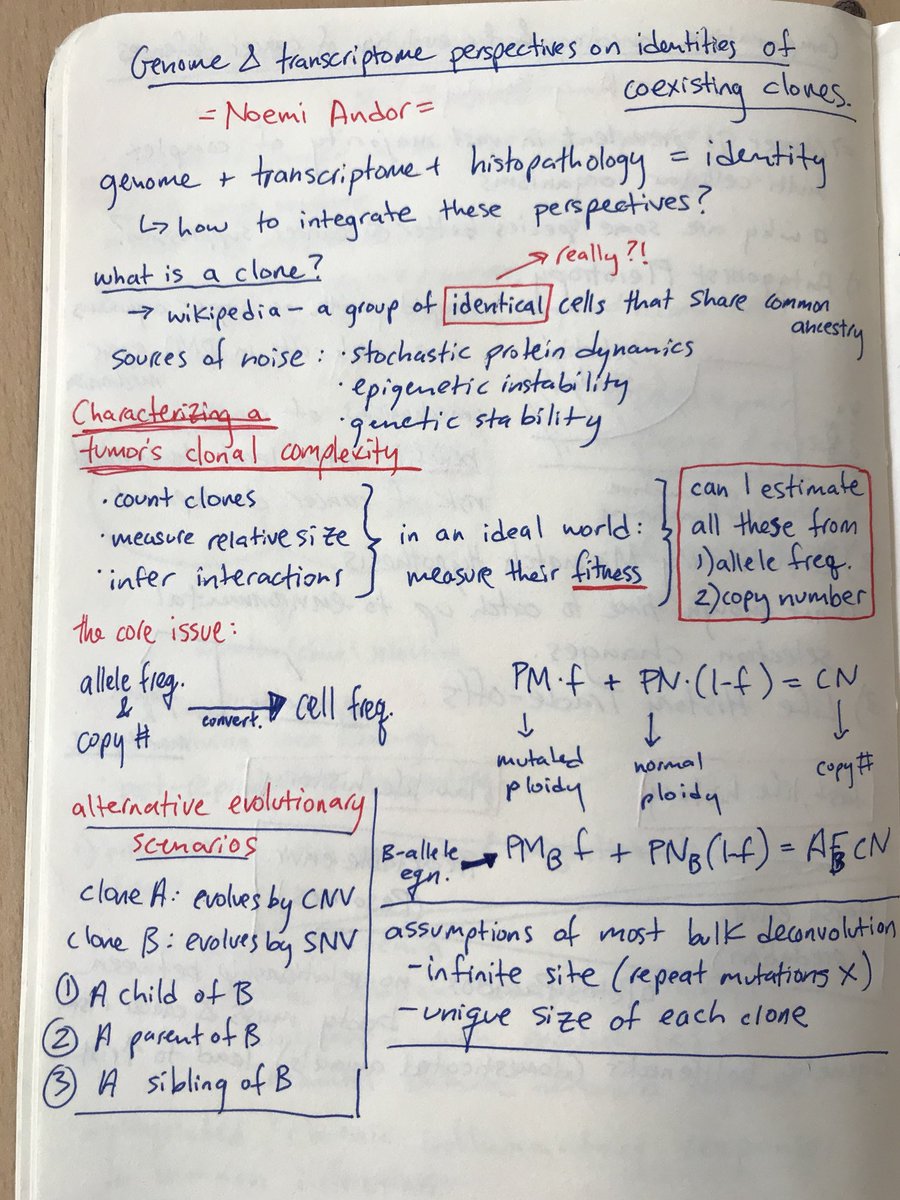 Genome & transcriptome perspectives on identities of
coexisting clones.
= Noemi Andor =
genome + transcriptome + histopathology = identity
↳ how to integrate these perspectives?
what is a clone?
→ really?!
→ wikipedia – a group of identical cells that share common
ancestry
sources of noise : · stochastic protein dynamics
· epigenetic instability
· genetic stability
Characterizing a
tumor's clonal complexity
· count clones
· measure relative size
· infer interactions
in an ideal world:
measure their fitness
can I estimate
all these from
1) allele freq.
2) copy number
the core issue:
allele freq.
&
copy #
convert.
cell freq.
PM·f + PN·(1-f) = CN
↓ ↓ ↓
mutated
ploidy
normal
ploidy
copy #
B-allele
eqn.
PM_B f + PN_B (1-f) = AF_B CN
alternative evolutionary
scenarios
clone A: evolves by CNV
clone B: evolves by SNV
① A child of B
② A parent of B
③ A sibling of B
assumptions of most bulk deconvolution
- infinite site (repeat mutations X)
- unique size of each clone